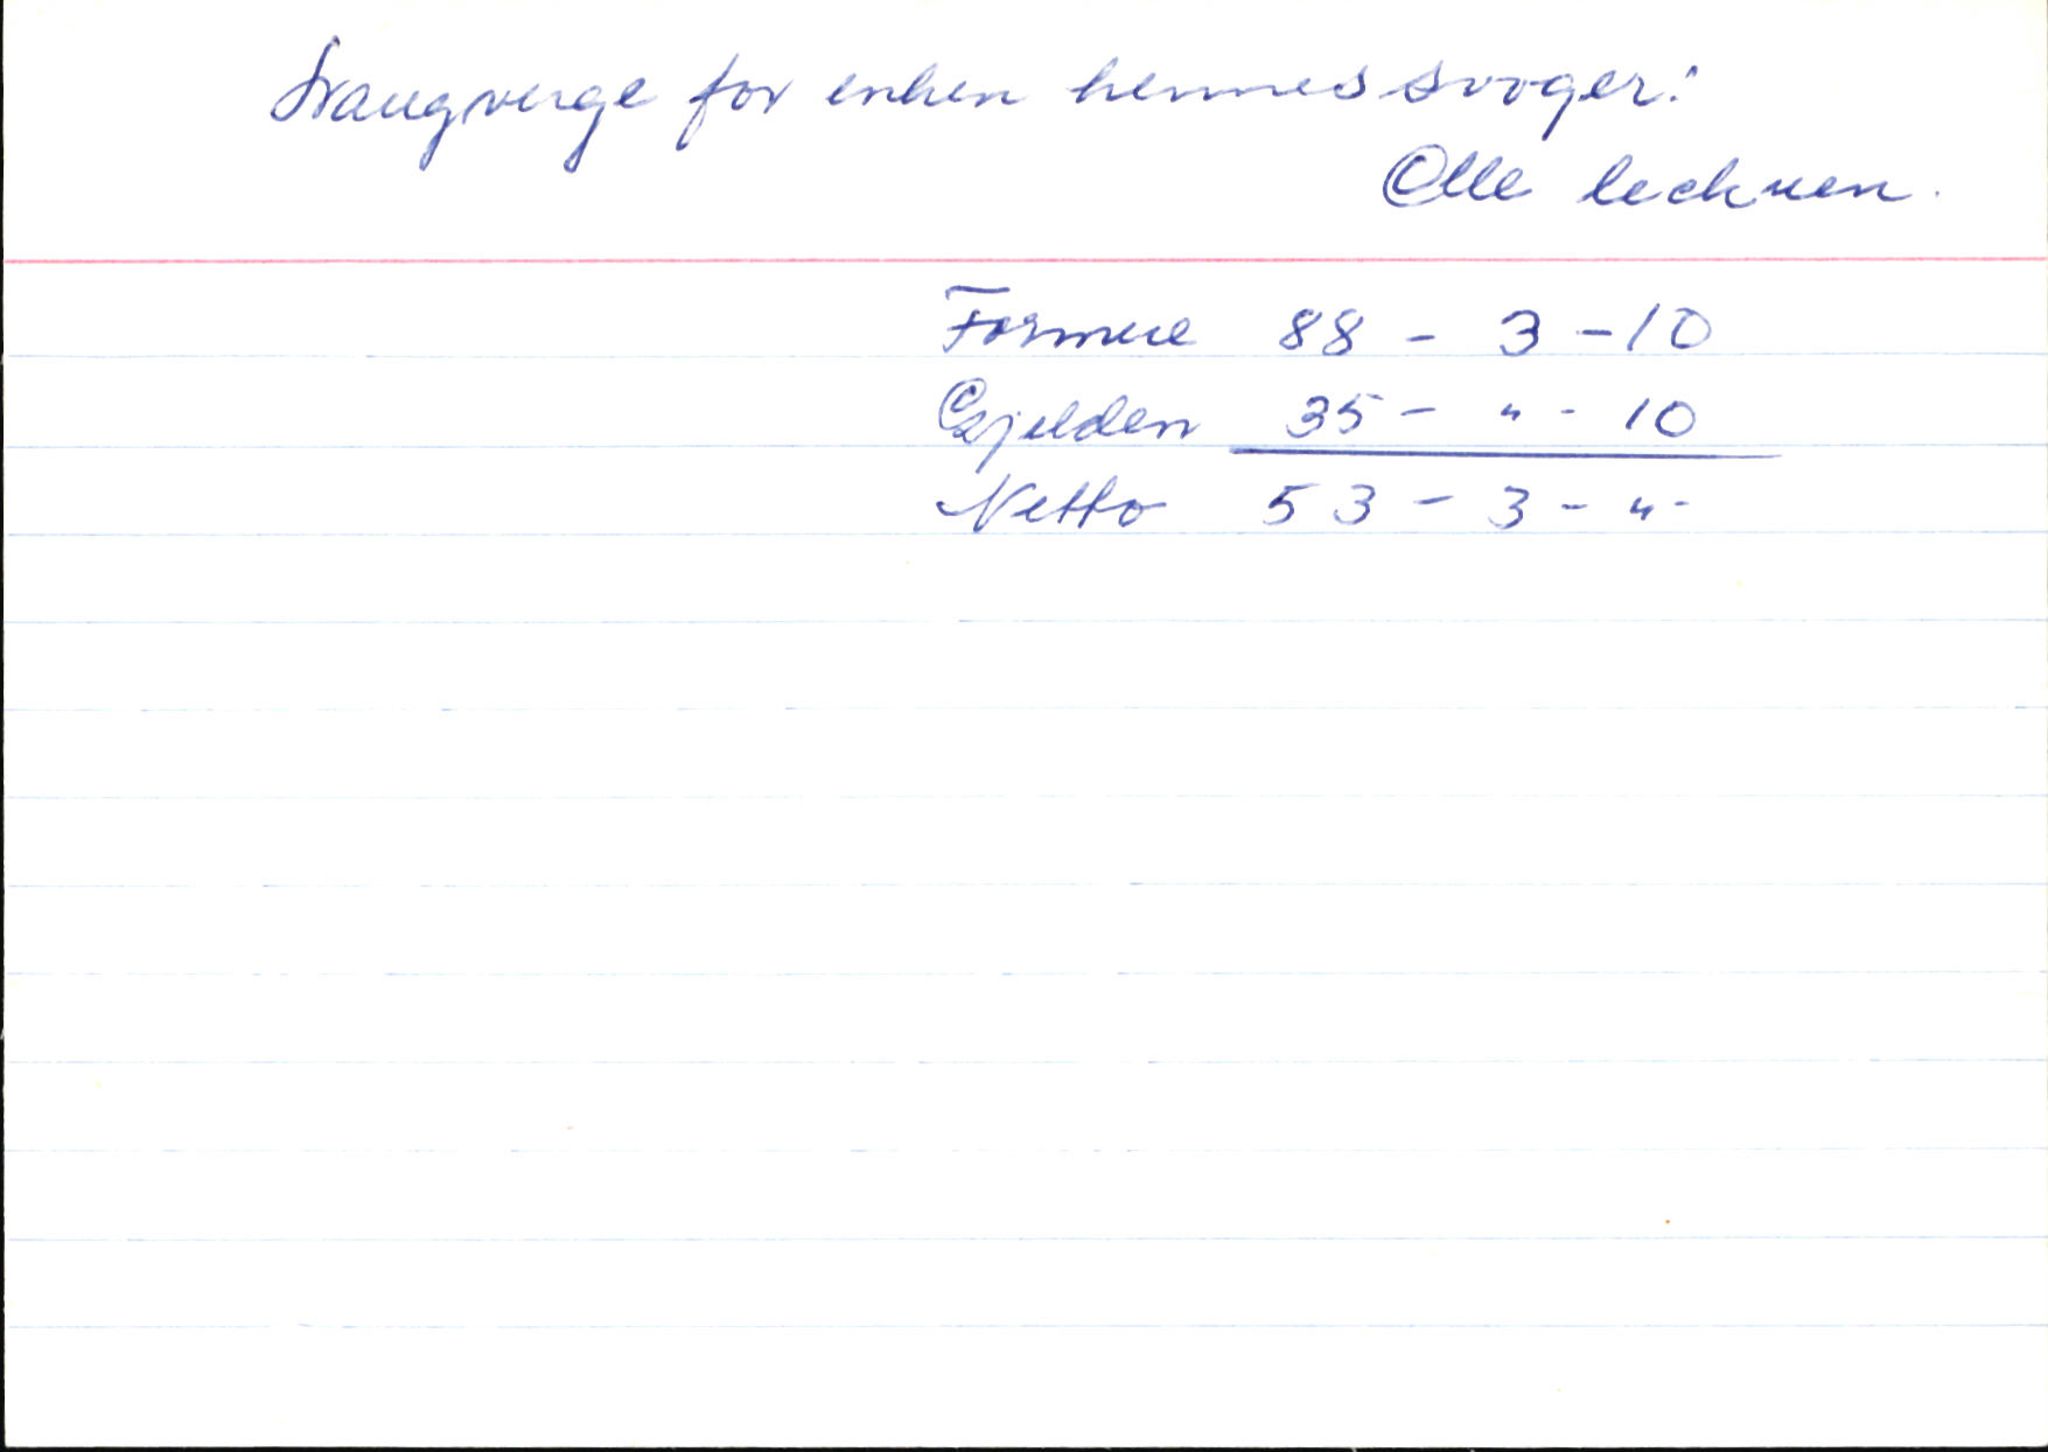 Laugverge for enken hennes svoger:
Olle lechnen.
Formue 88 - 3 - 10
Gjelden 35 - " - 10
Netto 53 - 3 - " -